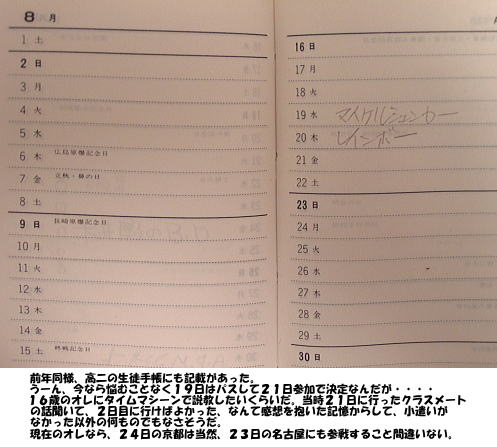 8月
1 土
2 日
3 月
4 火
5 水
6 木 広島原爆記念日
7 金 立秋・鼻の日
8 土
9 日 長崎原爆記念日
10 月
11 火
12 水
13 木
14 金
15 土 終戦記念日
16 日
17 月
18 火
19 水 マイケルシェンカー
20 木 レインボー
21 金
22 土
23 日
24 月
25 火
26 水
27 木
28 金
29 土
30 日
前年同様、高二の生徒手帳にも記載があった。
うーん、今なら悩むことなく１９日はパスして２１日参加で決定なんだが・・・・
１６歳のオレにタイムマシーンで説教したいくらいだ。当時２１日に行ったクラスメート
の話聞いて、２日目に行けばよかった、なんて感想を抱いた記憶からして、小遣いが
なかった以外の何ものでもなさそうだ。
現在のオレなら、２４日の京都は当然、２３日の名古屋にも参戦すること間違いない。